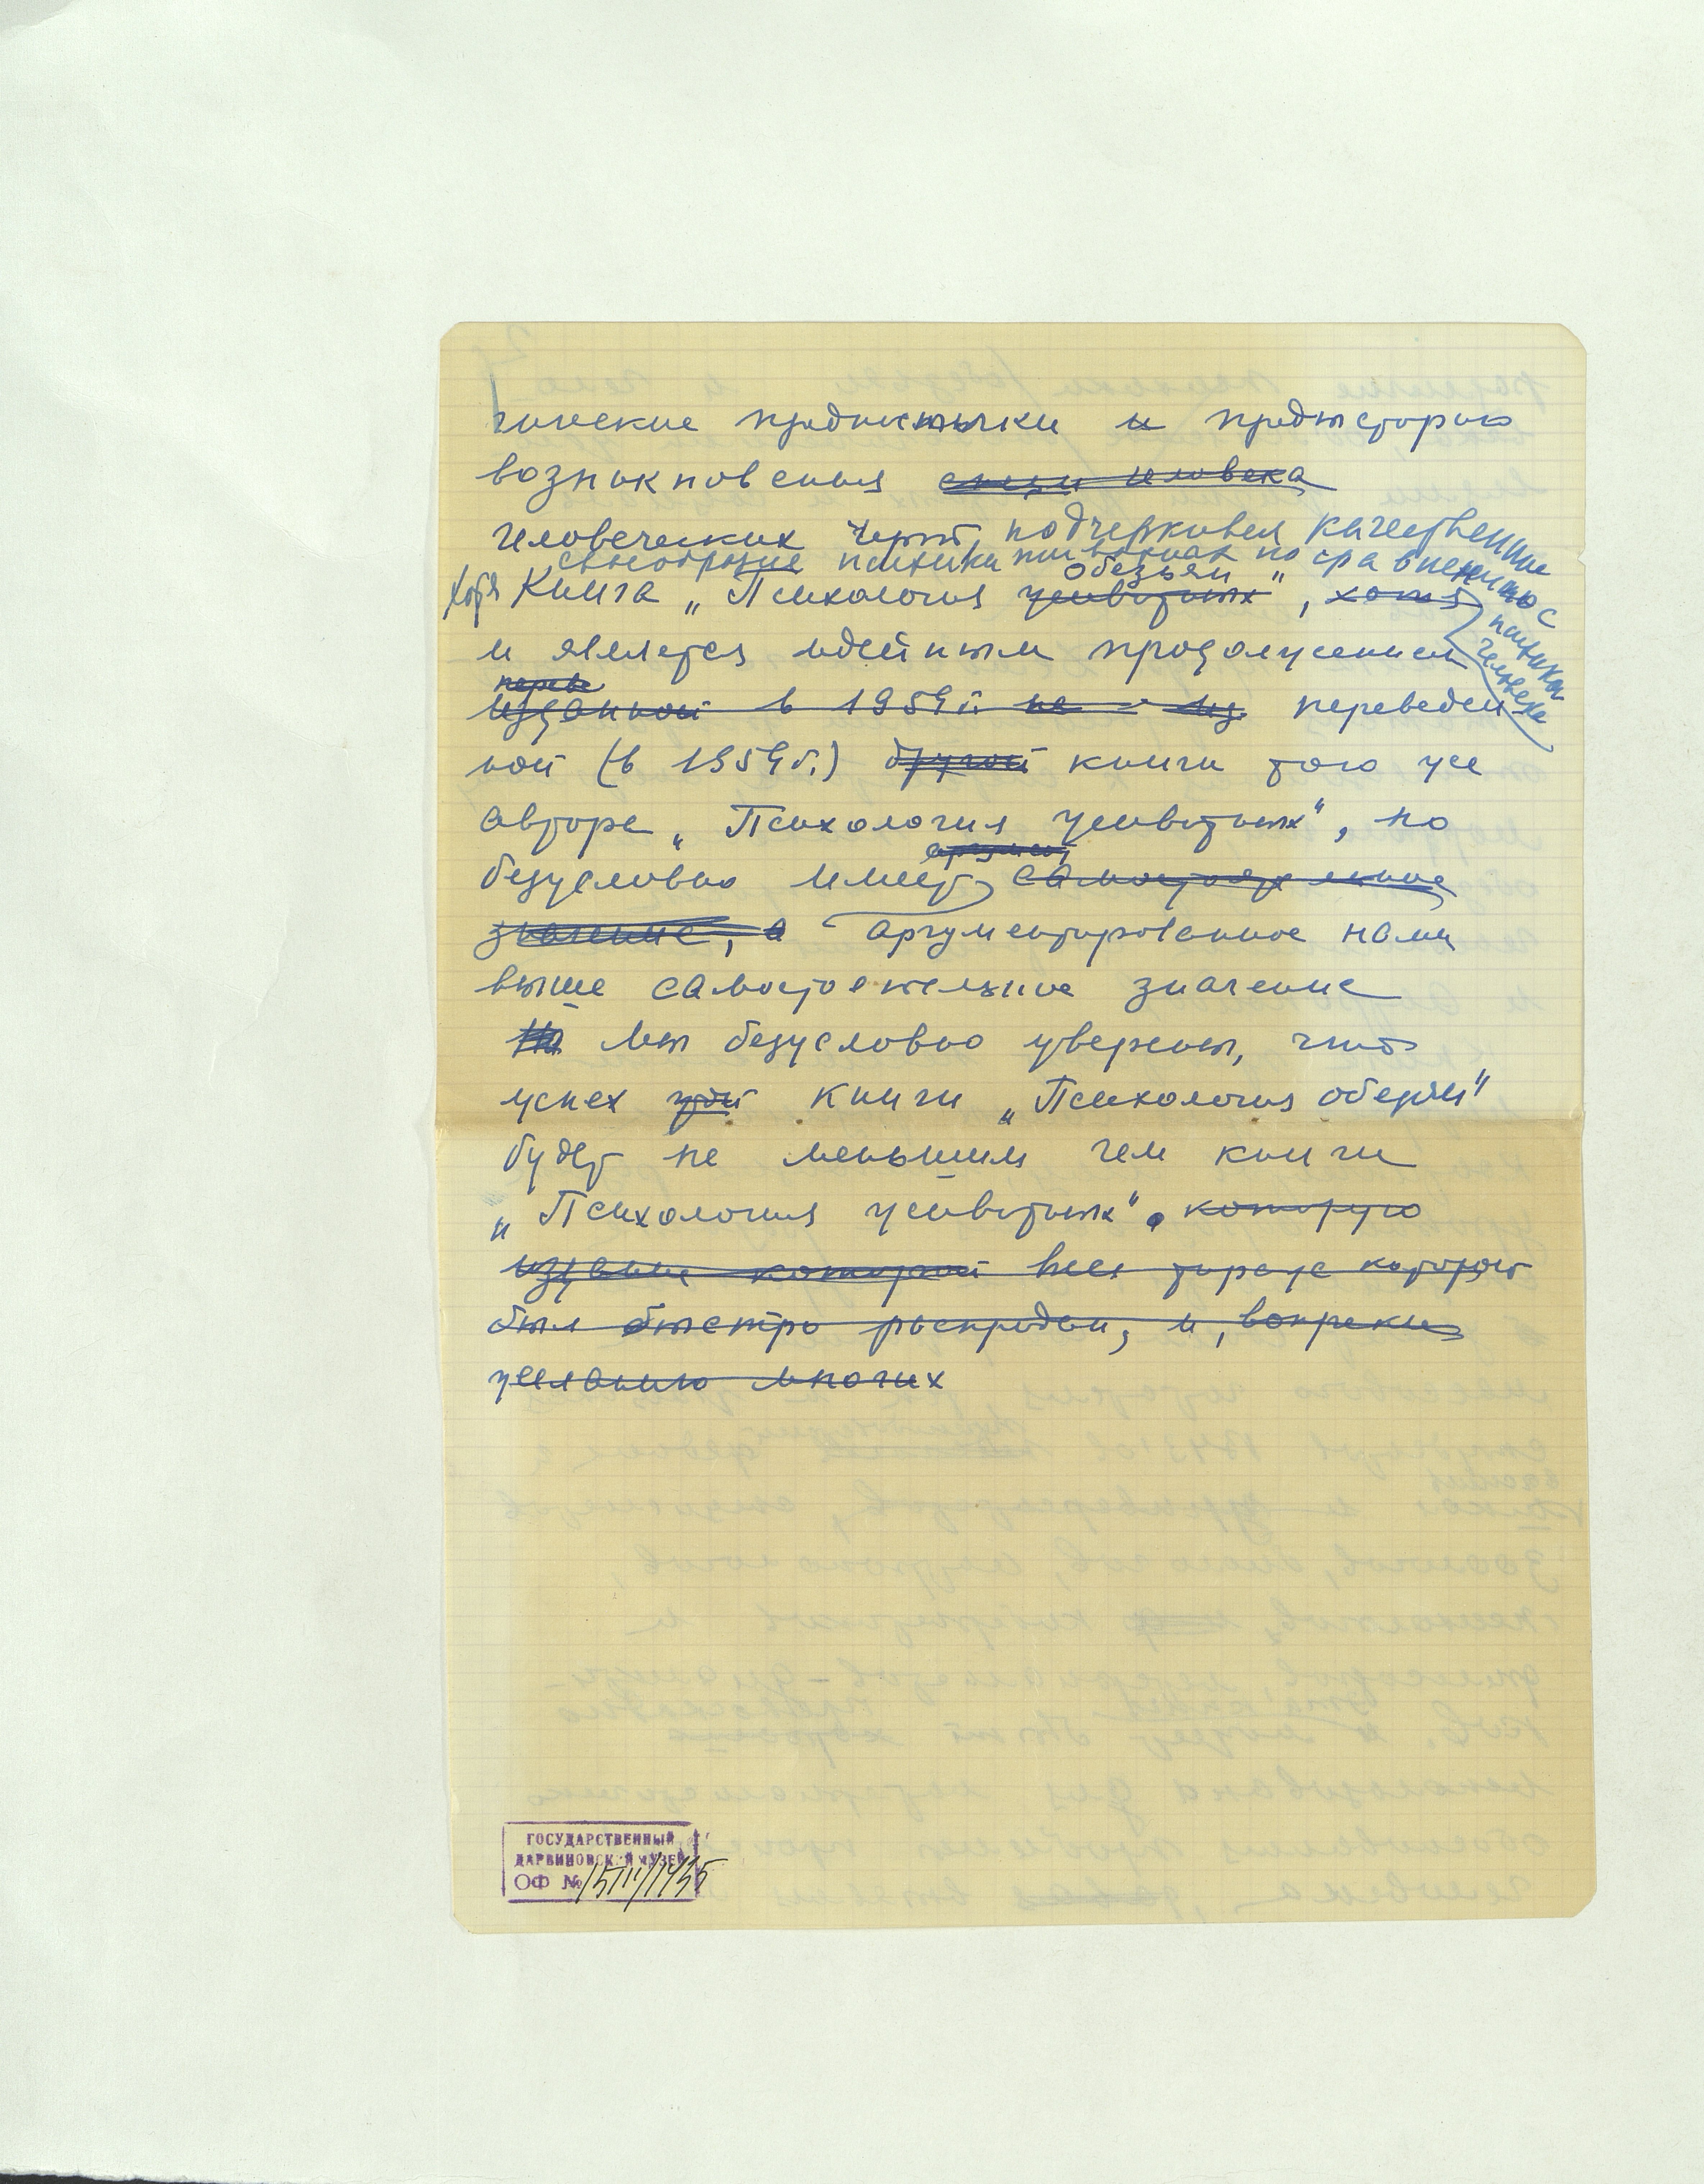 гические предпосылки и предысторию
возникновения
человеческих черт, подчеркивая качественное
своеобразие психики по сравнению с
психикой
человека
обезьян
Хотя Книга „Психология животных", хотя
и является идейным продолжением
переве
изданной в 1959 г. не из переведен
ной (в 1959 г.) другой книги того же
автора „Психология животных", но
аргумент
безусловно имеет самостоятельное
значение, а аргументированное нами
выше самостоятельное значение
Но Мы безусловно уверены, что
успех этой книги „Психология обезьян"
будет не меньшим чем книги
„Психология животных". которую
издание которой весь тираж которой
был быстро распродан, и, вопреки
желанию многих
ГОСУДАРСТВЕННЫЙ
ДАРВИНОВСКИЙ МУЗЕЙ
ОФ №